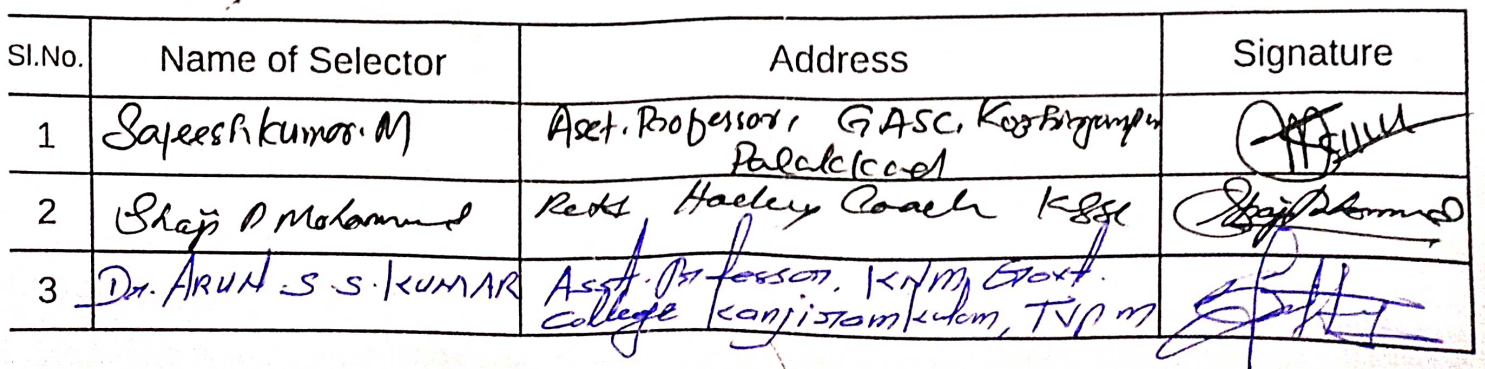 Sl.No. Name of Selector Address Signature
1 Sajeeshkumar. M Asst. Professor, GASC, Kozhinjampara
Palakkad
2 Shaji P Mohammed Retd Hockey Coach KSSC
3 Dr. ARUN .S S. KUMAR Asst. Professor, KNM, Govt.
College Kanjiramkulam, TVPM